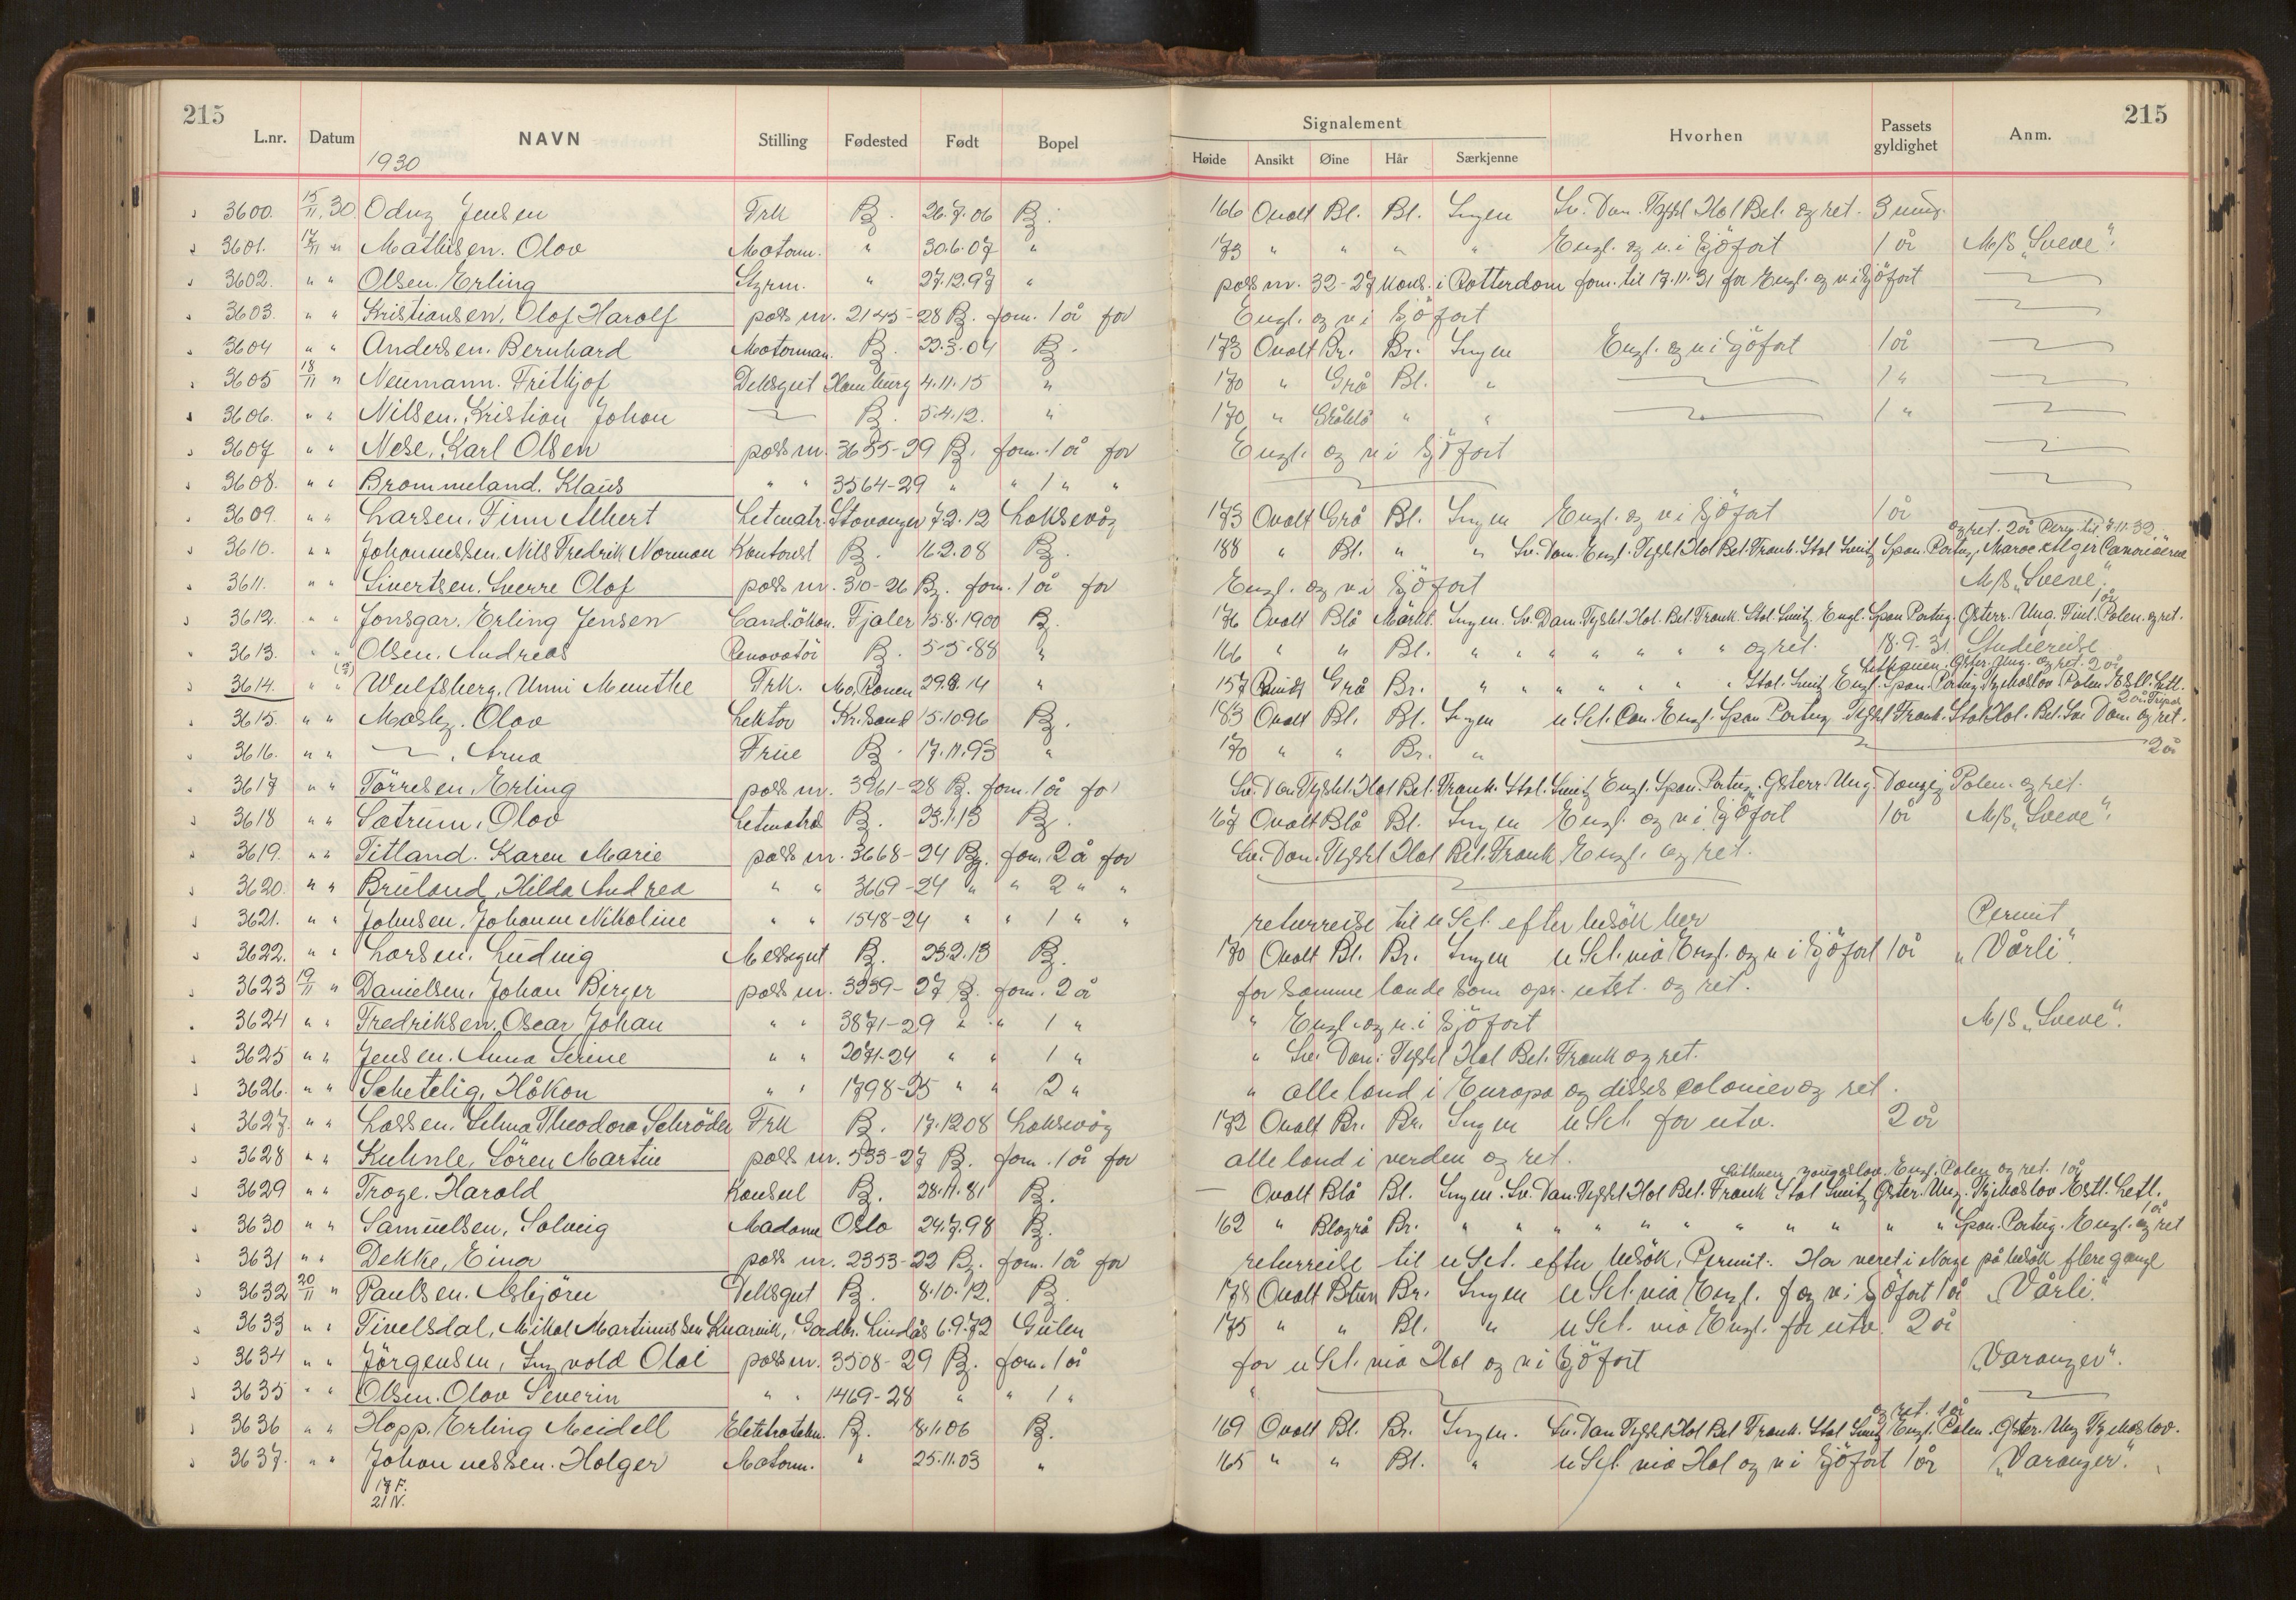 215
L.nr. Datum NAVN Stilling Fødested Født Bopel
1930
Signalement Hvorhen Passets gyldighet Anm. 215
Høide Ansikt Øine Hår Særkjenne
3600. 15/11. 30. Odny Jensen Frk B. 26.7.06 B. 166 Ovalt Bl. Bl. Ingen Sv. Dan. Tyskl Hol Bel. og ret. 3 mng.
3601. 17/11 " Mathisen. Olav Motorm. " 30.6.07 " 173 " " " " Engl. og v. i Sjöfart 1 år M/S „Sveve".
3602. " " Olsen. Erling Styrm. " 27.12.97 " pass nr. 32-27 kons. i Rotterdam forn. til 17.11.31 for Engl. og v i Sjöfart
3603. " " Kristiansen, Olaf Harolf pass nr. 2145-28 B. forn. 1 år for Engl. og v i Sjöfart
3604 " " Andersen. Bernhard Motorman. B. 22.3.04 B. 173 Ovalt Br. Br. Ingen Engl. og v i Sjöfart 1 år
3605 18/11 " Neumann. Frithjof Deksgut Hamburg 4.11.15 " 170 " Grå Bl. " 1 "
3606. " " Nilsen. Kristian Johan B. 5.4.12. " 170 " Gråblå " " 1 "
3607 " " Nese. Karl Olsen pass nr. 3655-29 B. forn. 1 år for Engl. og v i Sjöfart
3608. " " Brommeland. Klaus " " 3564-29 " " 1 " "
3609. " " Larsen. Finn Albert Letmatr. Stavanger 7.2.12 Laksevåg 173 Ovalt Grå Bl. Ingen Engl. og v i Sjöfart 1 år
og ret. 2 år
3610. " " Johannessen. Nils Fredrik Norman Kontorist B. 16.2.08 B. 188 " Bl. " " Sv. Dan. Engl. Tyskl Hol Bel. Frank. Ital Sveitz Span. Portug. Maroc Alger Canariöerne
3611. " " Sivertsen. Sverre Olaf pass nr. 310-26 B. forn. 1 år for Engl. og v i Sjöfart M/S „Sveve".
1 år
3612. " " Jonsgar. Erling Jensen Cand.ökon. Fjaler 15.8.1900 B. 176 Ovalt Blå Mörkbl. Ingen. Sv. Dan. Tyskl. Hol. Bel. Frank. Ital. Sveitz. Engl. Span Portug. Österr. Ung. Finl. Polen. og ret.
3613. " " Olsen. Andreas Renovatör B. 5.5.88 " 166 " " Bl. " " " " " " " og ret. 18.9.31 Studiereise
Lithauen. Öster. Ung. og ret. 2 år
3614. " " Wulfsberg. Unni Munthe Frk. Mo, Ranen 29.8.14 " 157 Rundt Grå Br. " " " " " " Ital. Sveitz Engl. Span. Portug. Tjekoslov Polen. Estl. Letl.
3615. " " Mosby. Olav Lektor Kr.sand 15.10.96 B. 183 Ovalt Bl. Bl. Ingen u. St. Can. Engl. Span Portug Tyskl Frank. Ital Hol. Bel. Sv. Dan. og ret.
3616. " " Arna Frue B. 17.11.93 " 170 " " Br. " 2 år
3617 " " Törresen, Erling pass nr. 3961-28 B. forn. 1 år for Sv. Dan Tyskl. Hol Bel. Frank. Ital. Sveitz Engl. Span. Portug. Österr. Ung. Danzig Polen. og ret.
3618 " " Sætrum. Olav Letmatros B. 23.1.13 B. 167 Ovalt Blå Bl. Ingen Engl. og v i Sjöfart 1 år M/S „Sveve".
3619. " " Titland. Karen Marie pass nr. 3668-24 B. forn. 2 å for Sv. Dan. Tyskl Hol Bel. Frank Engl. og ret.
3620. " " Bruland, Hilda Andrea " " 3669-24 " " 2 " "
3621. " " Johnsen. Johanne Nikoline " " 1548-24 " " 1 " " returreise til u St. efter besök her Permit
3622. " " Larsen. Ludvig Messegut B. 23.2.13 B. 170 Ovalt Bl. Br. Ingen u St. via Engl. og v i Sjöfart 1 år „Vårli".
3623 19/11 " Danielsen. Johan Birger pass nr. 3239-27 B. forn. 2 å for samme lande som opr. utst. og ret.
3624 " " Fredriksen. Oscar Johan " " 3871-29 " " 1 " " Engl. og v. i Sjöfart M/S „Sveve".
3625 " " Jensen. Anna Serine " " 2071-24 " " 1 " " Sv. Dan. Tyskl Hol Bel. Frank og ret.
3626. " " Schetelig, Håkon " " 1798-25 " " 2 " " alle land i Europa og disses colonier og ret.
3627. " " Lassen. Selma Theodora Schröder Frk B. 17.12.08 Laksevåg 172 Ovalt Br. Br. Ingen u St. for utv. 2 år
3628 " " Kuhnle, Sören Martin pass nr. 533-27 B. forn. 1 år for alle land i verden og ret.
Lithauen, Yougoslav. Engl. Polen og ret. 1 år
3629 " " Troye. Harald Konsul B. 28.11.81 B. — Ovalt Blå Bl. Ingen. Sv. Dan. Tyskl Hol Bel. Frank Ital Sveitz Öster. Ung. Tjekoslov Estl. Letl.
1 år
3630 " " Samuelsen, Solveig Madame Oslo 24.7.98 B. 162 " Blågrå Br. " " " " " " " " " " " Span. Portug. Engl. og ret
3631 " " Dekke, Eina pass nr. 2353-22 B. forn. 1 år for returreise til u St. efter besök. Permit. Har veret i Norge på besök flere gange
3632 20/11 " Paulsen. Asbjörn Deksgut B. 8.10.12. B. 178 Ovalt Brun Br. Ingen u St. via Engl. f og v i Sjöfart 1 år „Vårli".
3633 " " Tivelsdal, Mikal Martinussen Kvarvik, Gardbr. Lindås 6.9.72 Gulen 175 " " Bl. " u St. via Engl. for utv. 2 år
3634 " " Jörgensen, Ingvald Olai pass nr. 3508-29 B. forn. 1 år for u St. via Hol og v i Sjöfart „Varanger".
3635 " " Olsen. Olav Severin " " 1469-28 " " 1 " "
og ret. 1 år
3636 " " Hopp. Erling Meidell Elektrotekn. B. 8.1.06 B. 169 Ovalt Bl. Br. Ingen. Sv. Dan Tyskl Hol Bel Frank. Ital Sveitz Engl. Polen. Öster. Ung Tjekoslov.
3637. " " Johannessen. Holger Motorm. " 25.11.03 " 165 " " Bl. " u St. via Hol og v i Sjöfart 1 år „Varanger".
17 F.
21 N.